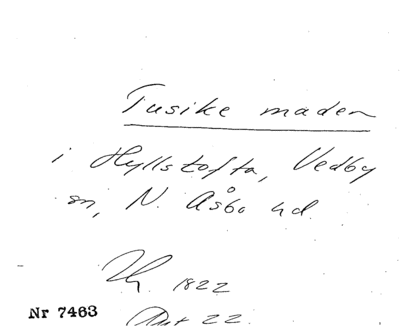 Tusike maden
i Hyllstofta, Vedby
sn, N. Åsbo hd.
1822
Nr 7463
22